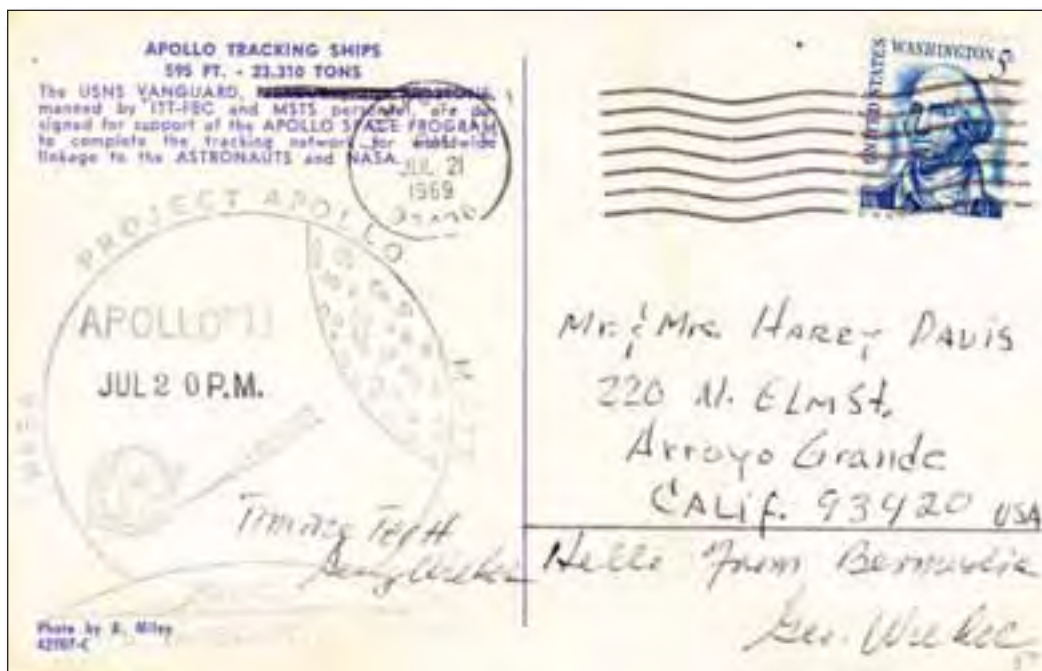 APOLLO TRACKING SHIPS
595 FT. - 23.310 TONS
The USNS VANGUARD,
manned by ITT-FEC and MSTS personnel, are de-
signed for support of the APOLLO SPACE PROGRAM
to complete the tracking network for worldwide
linkage to the ASTRONAUTS and NASA.
JUL 21
1969
PROJECT APOLLO
APOLLO 11
JUL 20 P.M.
Timing Tech
Photo by R. Miley
UNITED STATES
WASHINGTON 5
Mr. & Mrs. HAREY DAVIS
220 N. ELM St.
Arroyo Grande
CALIF. 93420 USA
Hello From Bermuda
Geo.